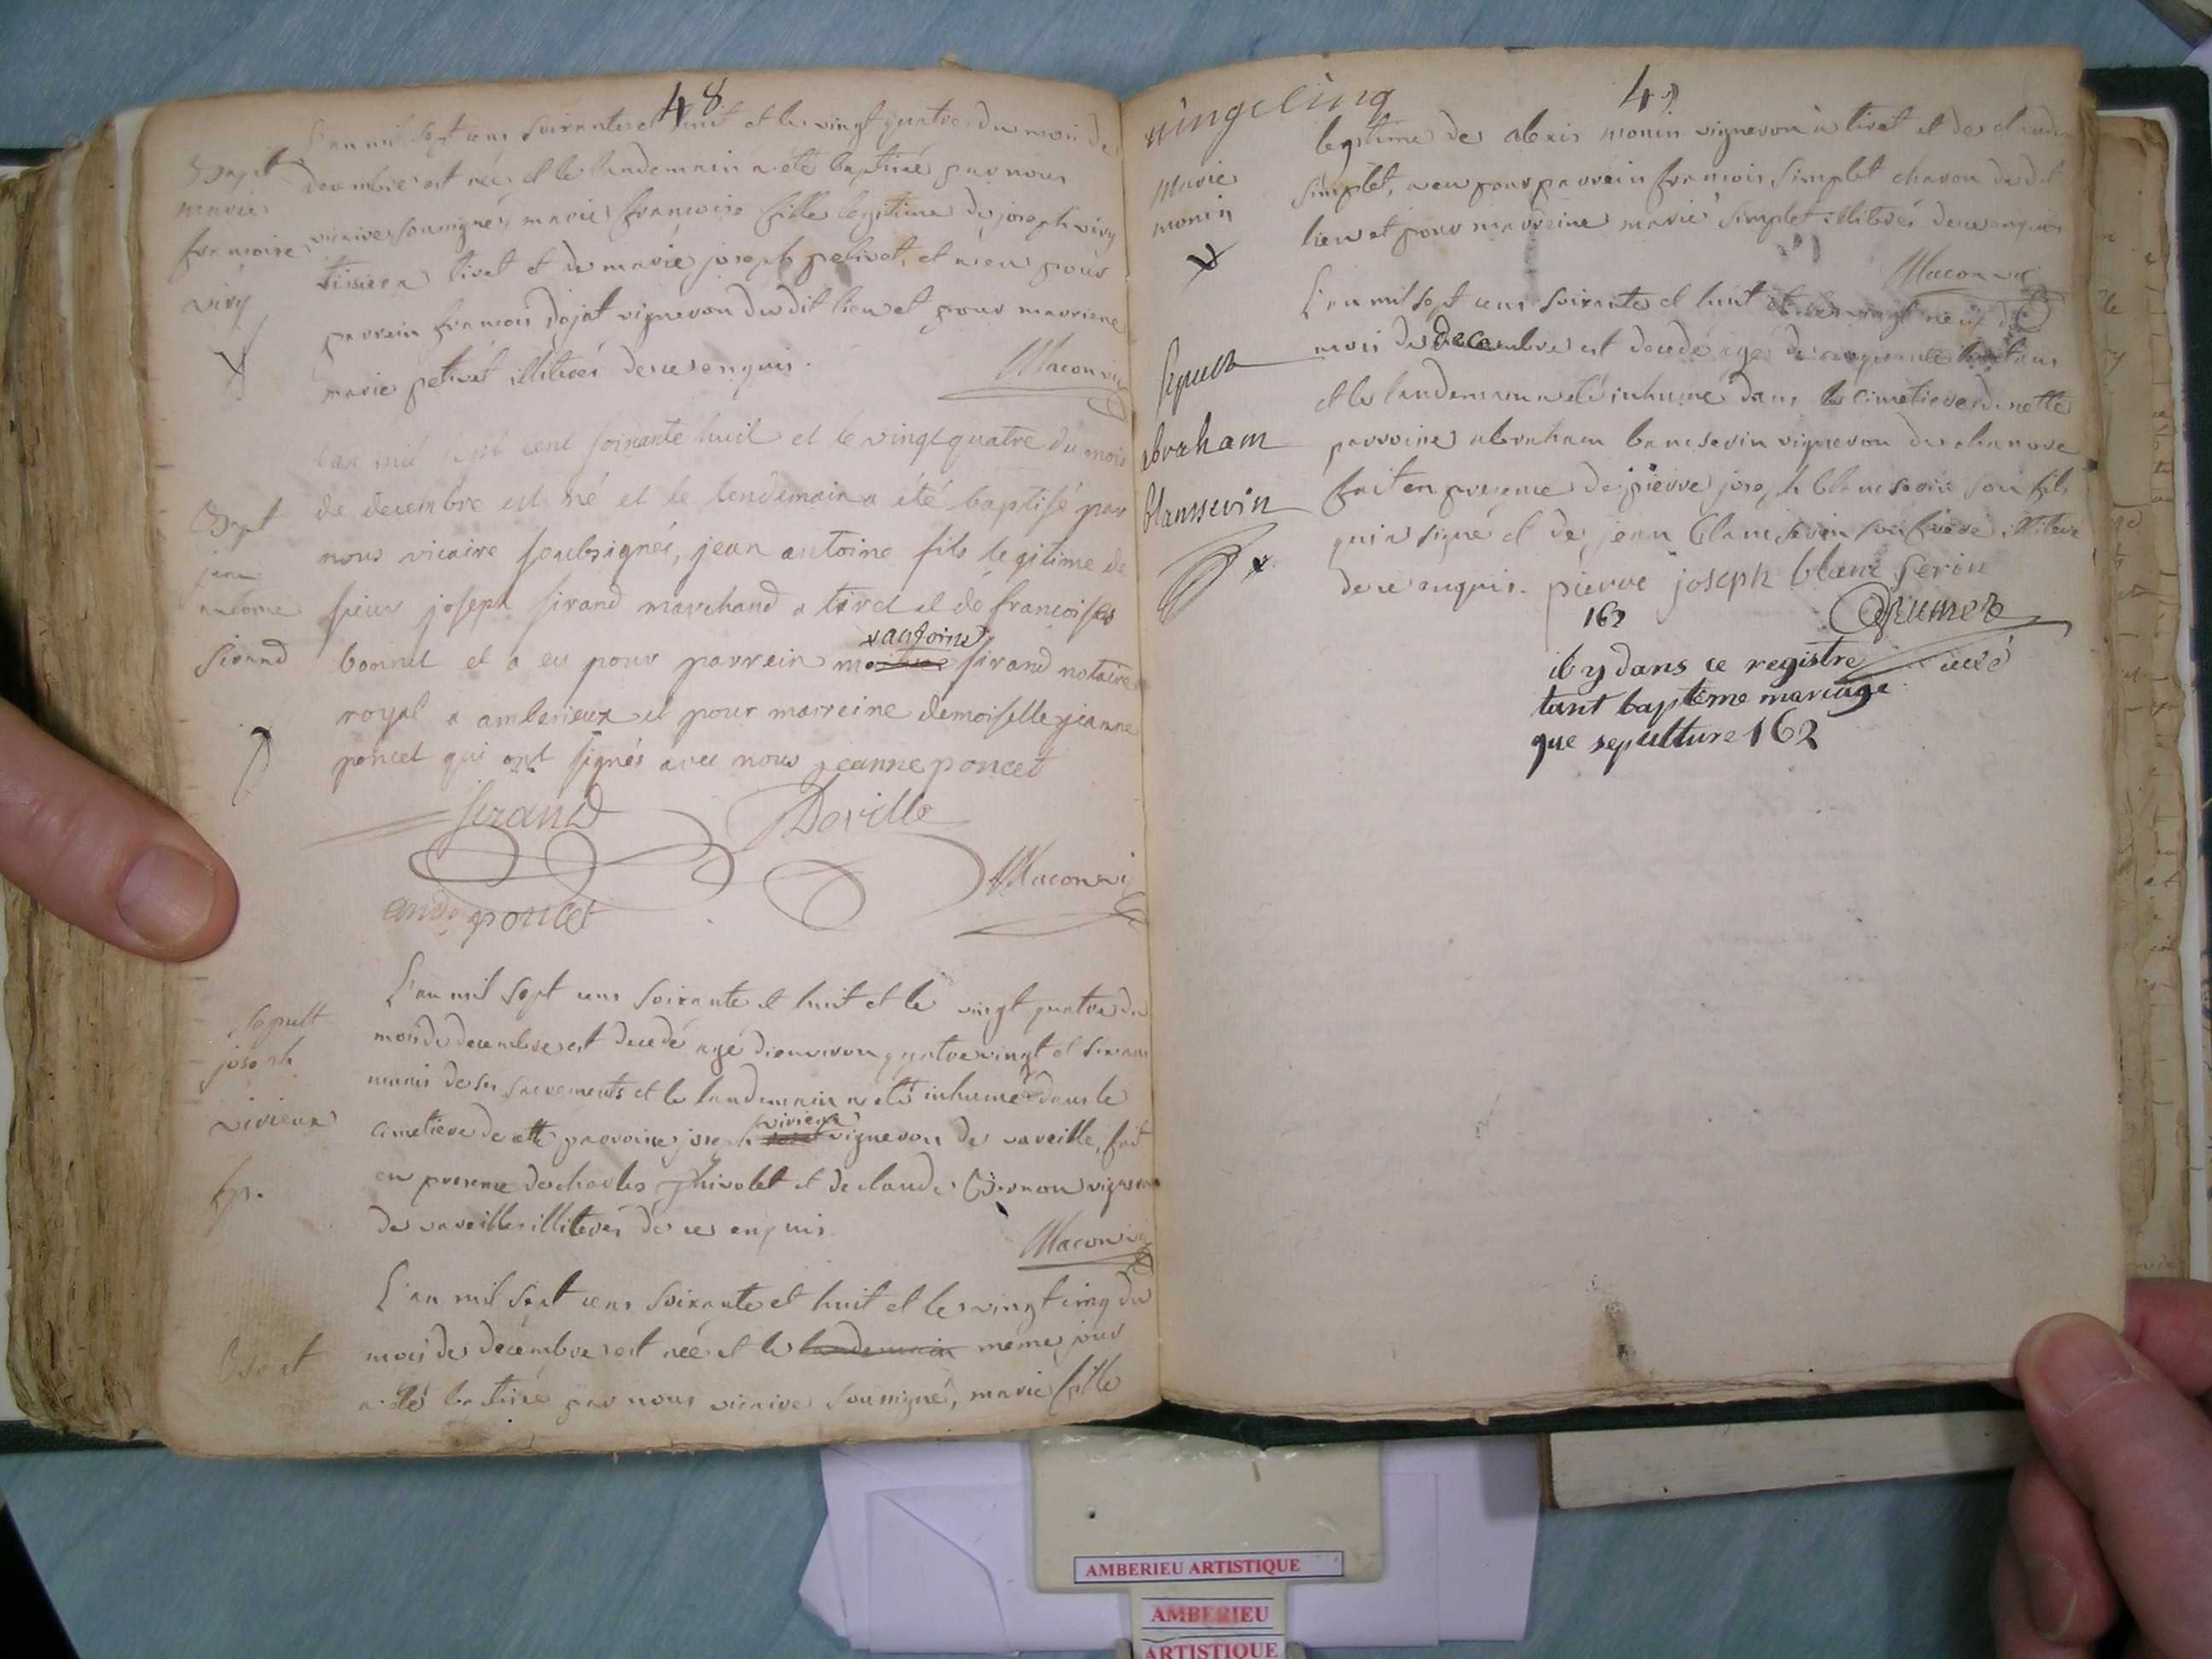 48
L'an mil sept cens soixante et huit et le vingt quatre du mois de
Bapt
decembre est née et le landemain a été baptisée par nous
marie
francoise
vicaire soussigné, marie francoise fille legitime de joseph viry
tissier a tiret et de marie joseph petivet, et a eu pour
viry
parrein francois dojat vigneron du dit lieu et pour marreine
marie petivet illiterés de ce enquis.
Maconvic
L'an mil sept cent soixante huit et le vingt quatre du mois
de decembre est né et le lendemain a été baptisé par
Bapt
nous vicaire soubsignés, jean antoine fils legitime de
jean
antoine
sieur joseph sirand marchand a tiret et de francoise
sirand
x antoine
bonnet et a eu pour parrein sirand notaire
royal a amberieux et pour marreine demoiselle jeanne
poncet qui ont signés avec nous jeanne poncet
Sirand Deville
Maconvic
poncet
L'an mil sept cens soixante et huit et le vingt quatre du
Sepult
mois de decembre est decedé agé d'environ quatre vingt et six ans
joseph
munis de ses sacrements et le landemain a été inhumé dans le
vivieux
vivieux
cimetiere de cette parroisse joseph vigneron de vareille, fait
en presence de charles Thivolet et de claude vigneron
de vareilles illiterés de ce enquis.
Maconvic
L'an mil sept cens soixante et huit et le vingt cinq du
Bapt
mois de decembre est née et le landemain meme jour
a été batisée par nous vicaire soussigné, marie fille
49
legitime de alexis monin vigneron à tiret et de claudine
Marie
simplet, a eu pour parrein francois simplet charon du dit
monin
lieu et pour marreine marie simplet illiterés de ce enquis
Maconvic
L'an mil sept cens soixante et huit et le vingt neuf du
mois de decembre est decedé agé de cinquante huit ans
Sepult
et le landemain a été inhumé dans le cimetiere de notte
abraham
parroisse abraham blancserin vigneron de chanove
blansserin
fait en presence de pierre joseph blancserin son fils
qui a signé et de jean blancserin son frere illiteré
de ce enquis. pierre joseph blanc serin
162
curé
il y dans ce registre
tant bapteme mariage
que sepulture 162
AMBERIEU ARTISTIQUE
AMBERIEU
ARTISTIQUE